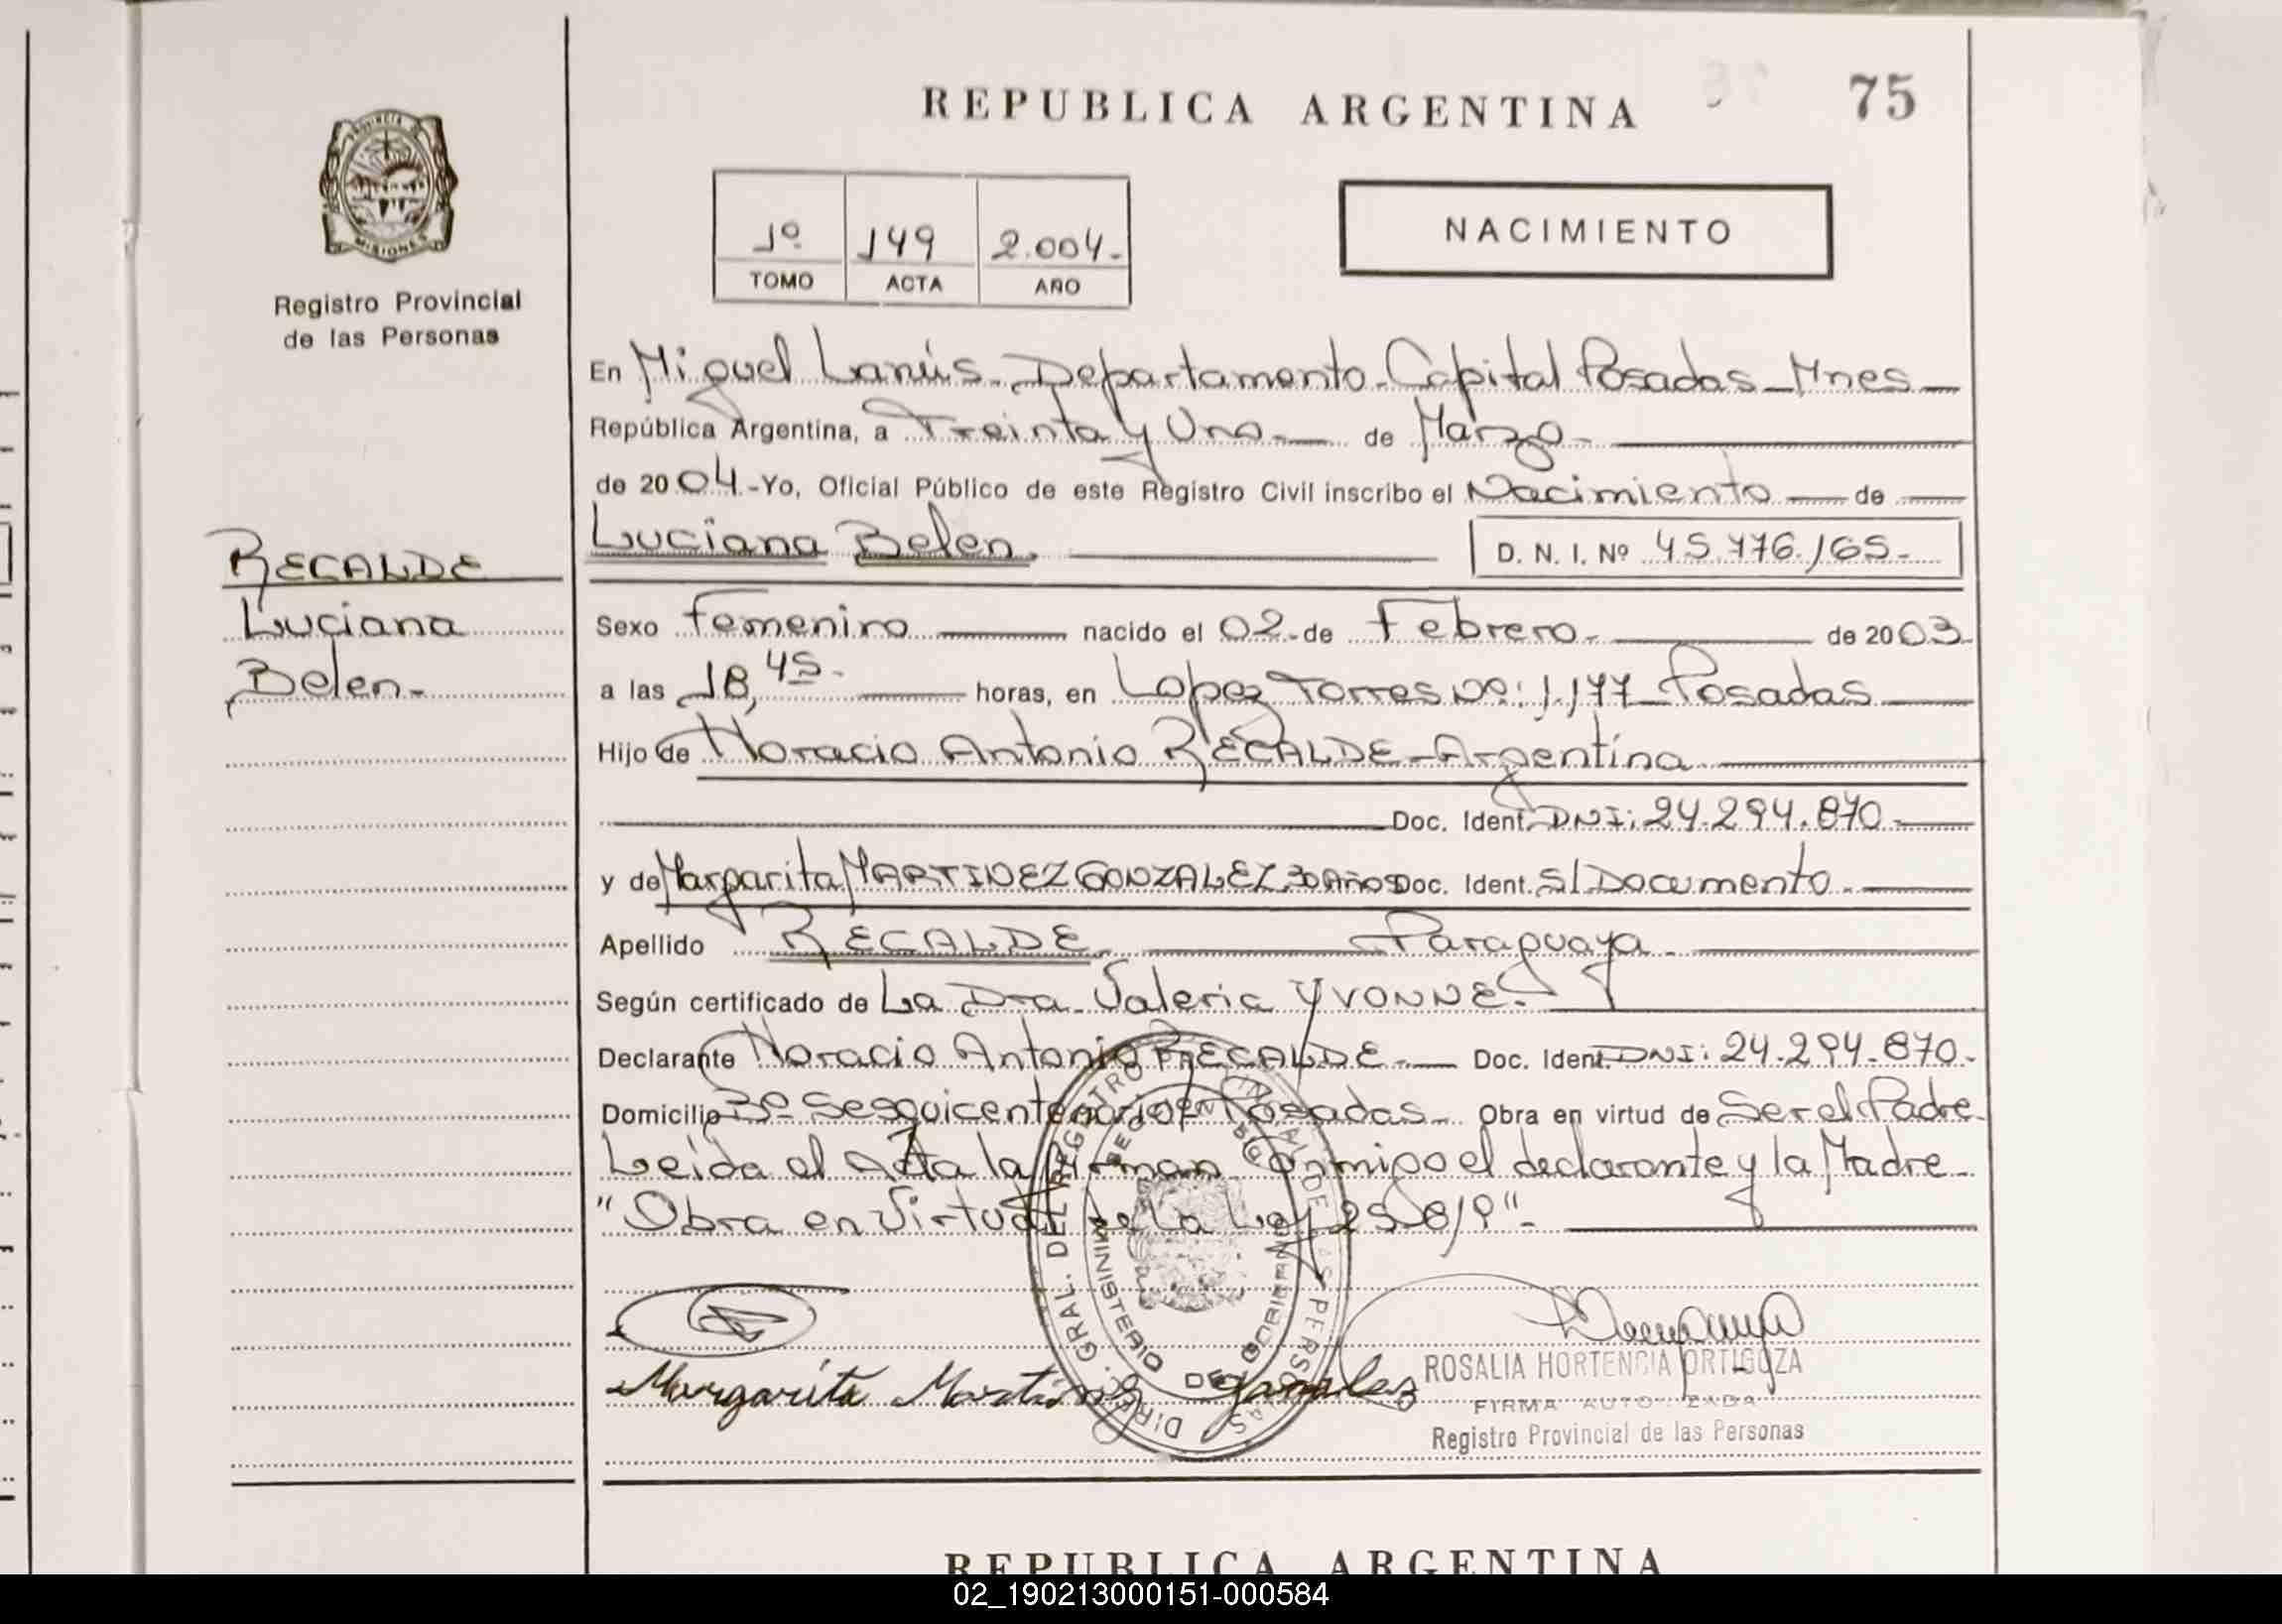 REPUBLICA ARGENTINA
75
PROVINCIA DE MISIONES
Registro Provincial
de las Personas
1º 149 2.004.-
TOMO ACTA AÑO
NACIMIENTO
En Miguel Lanús - Departamento - Capital Posadas - Mnes
República Argentina, a Treinta y Uno de Marzo
de 2004 - Yo, Oficial Público de este Registro Civil inscribo el Nacimiento de
RECALDE
Luciana
Belen -
Luciana Belen.
D. N. I. Nº 45.776.165-
Sexo Femenino nacido el 02 - de Febrero - de 2003
a las 18,45 - horas, en Lopez Torres Nº: 1.177 - Posadas
Hijo de Horacio Antonio RECALDE - Argentina
Doc. Ident. DNI: 24.294.870 -
y de Margarita MARTINEZ GONZALEZ 30 Años Doc. Ident. S/Documento -
Apellido RECALDE Paraguaya -
Según certificado de La Dra. Valeria YVONNE.
Declarante Horacio Antonio RECALDE - Doc. Ident. DNI: 24.294.870 -
Domicilio Bº Sesquicentenario - Posadas - Obra en virtud de Ser el Padre
Leída el Acta la firman Conmigo el declarante y la Madre -
"Obra en Virtud de La Ley 25.819" -
DIREC. GRAL. DEL REGISTRO PROVINCIAL DE LAS PERSONAS
MINISTERIO DE GOBIERNO
Margarita Martínez González
ROSALIA HORTENCIA ORTIGOZA
FIRMA AUTORIZADA
Registro Provincial de las Personas
REPUBLICA ARGENTINA
02_190213000151-000584